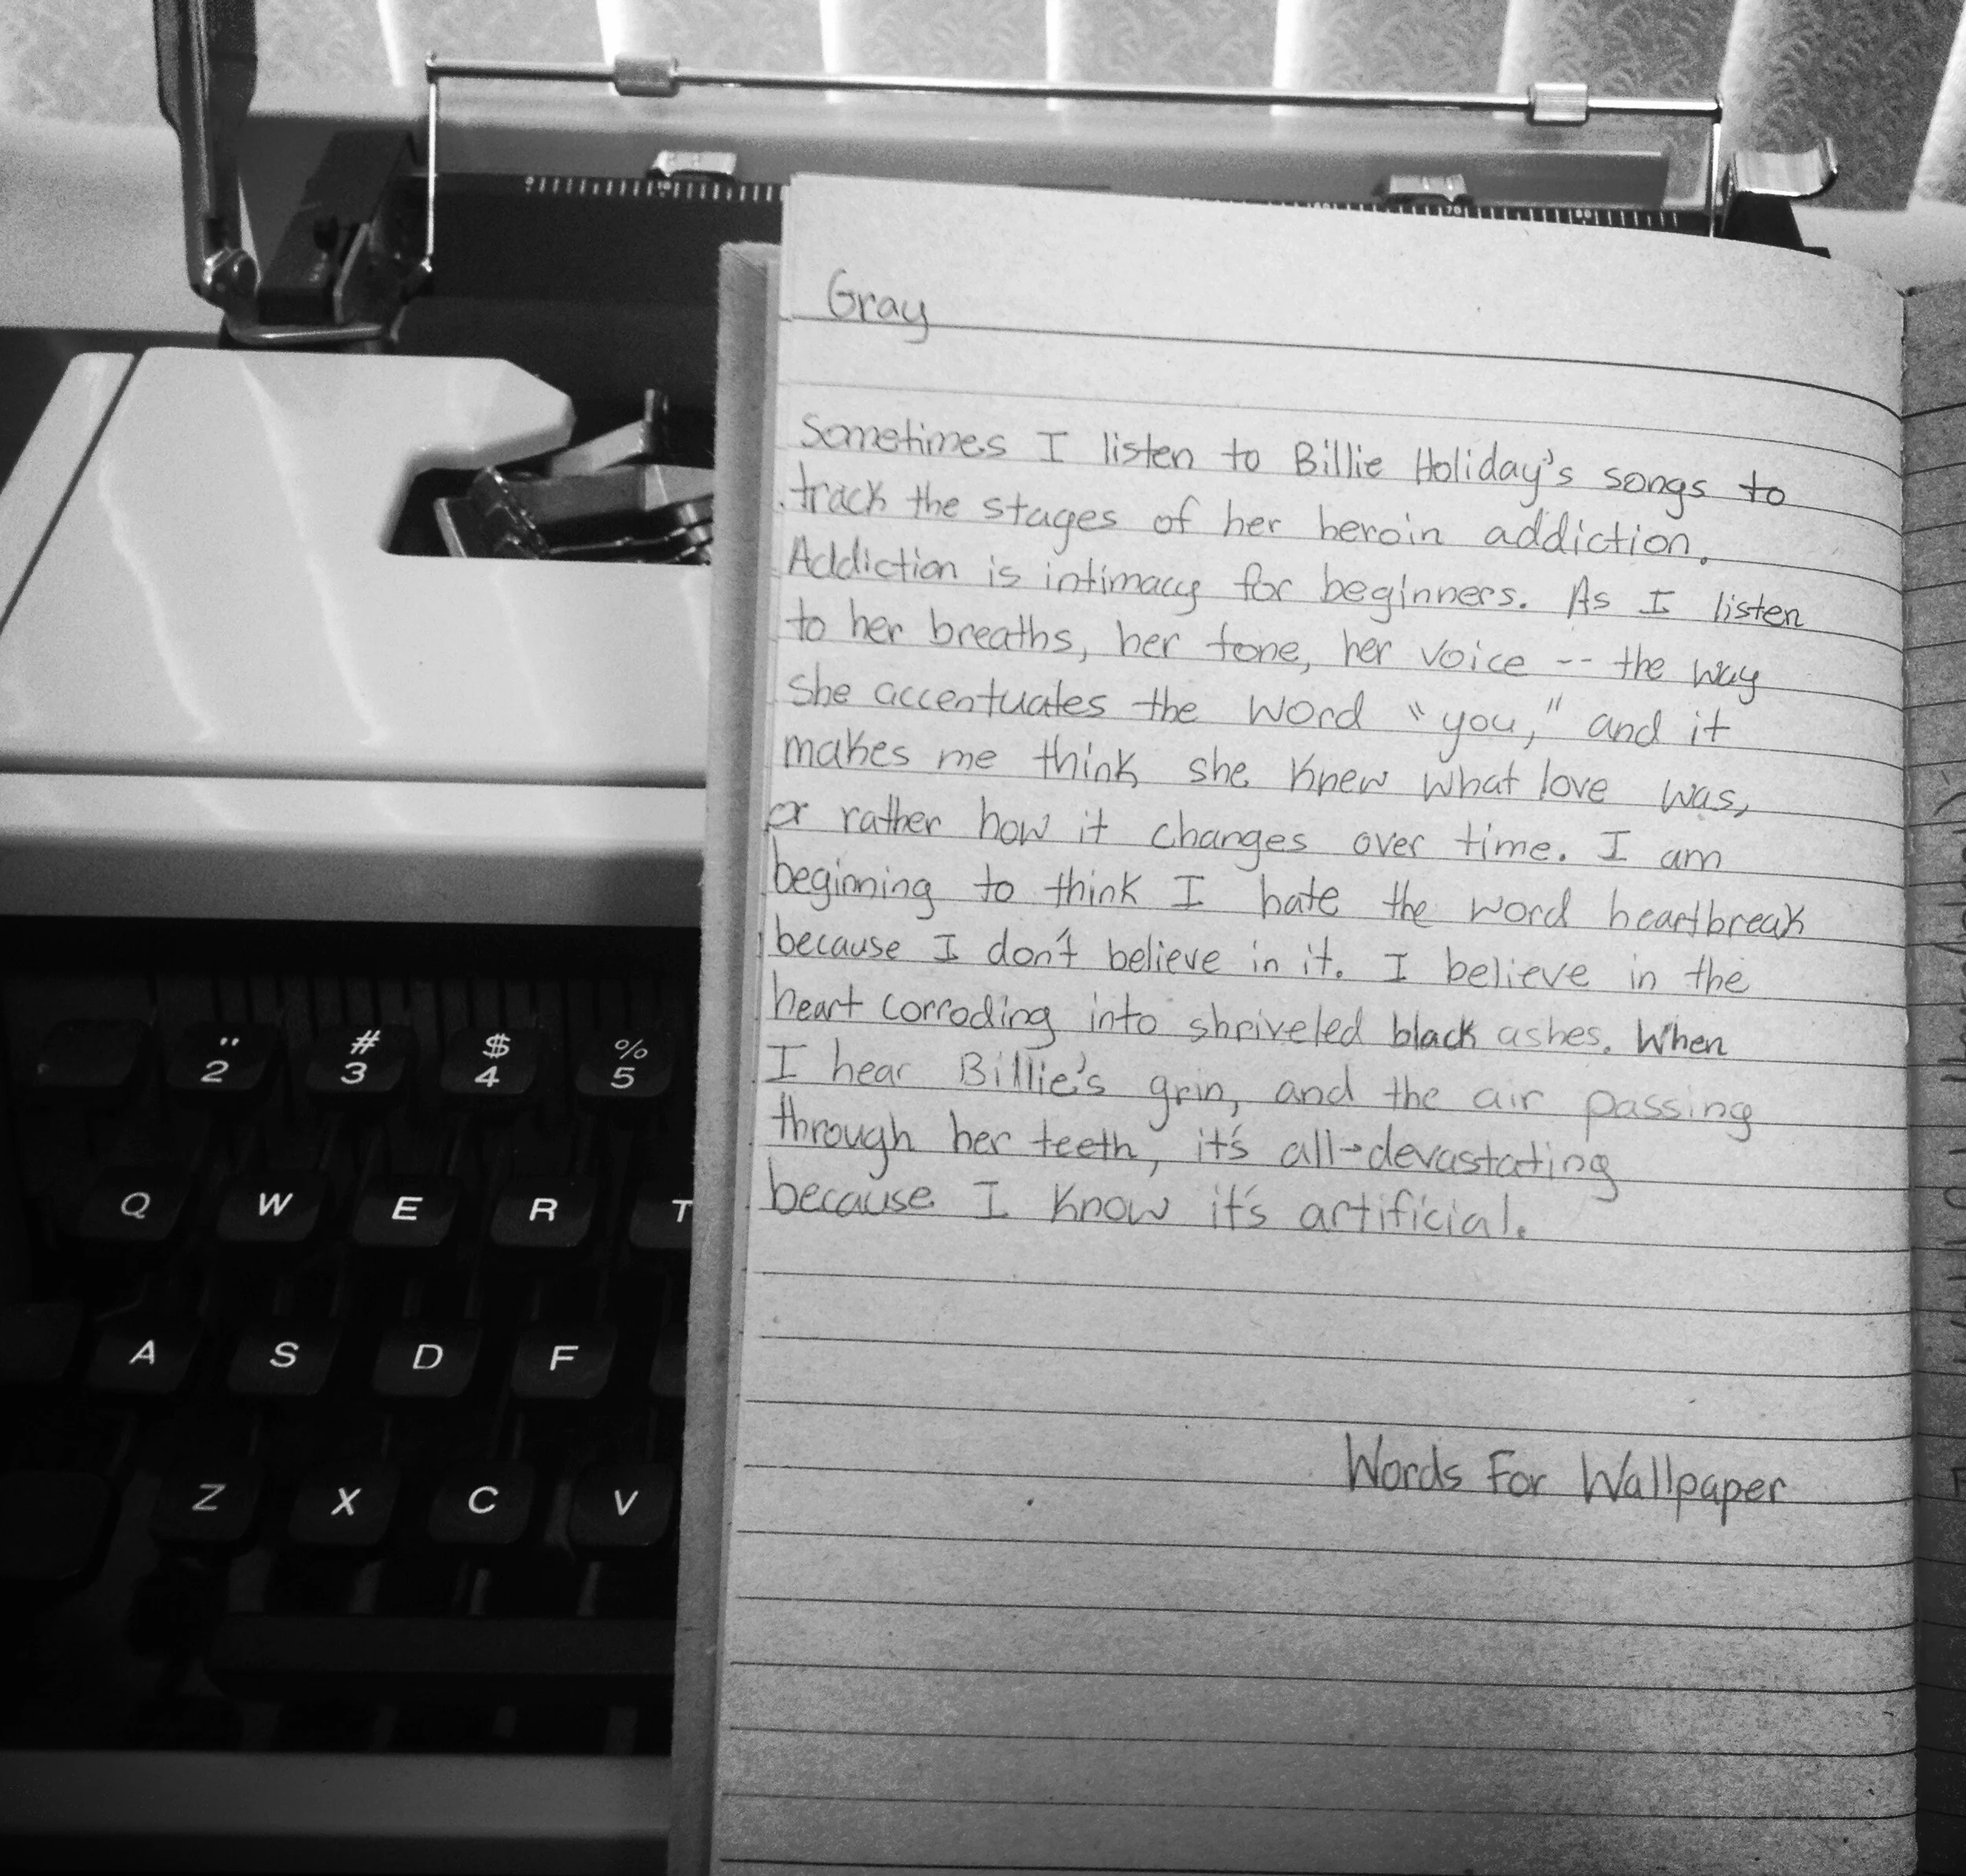 Gray
Sometimes I listen to Billie Holiday's songs to
track the stages of her heroin addiction.
Addiction is intimacy for beginners. As I listen
to her breaths, her tone, her voice -- the way
she accentuates the word "you," and it
makes me think she knew what love was,
or rather how it changes over time. I am
beginning to think I hate the word heartbreak
because I don't believe in it. I believe in the
heart corroding into shriveled black ashes. When
I hear Billie's grin, and the air passing
through her teeth, it's all-devastating
because I know it's artificial.
Words For Wallpaper
" # $ %
2 3 4 5
Q W E R T
A S D F
Z X C V